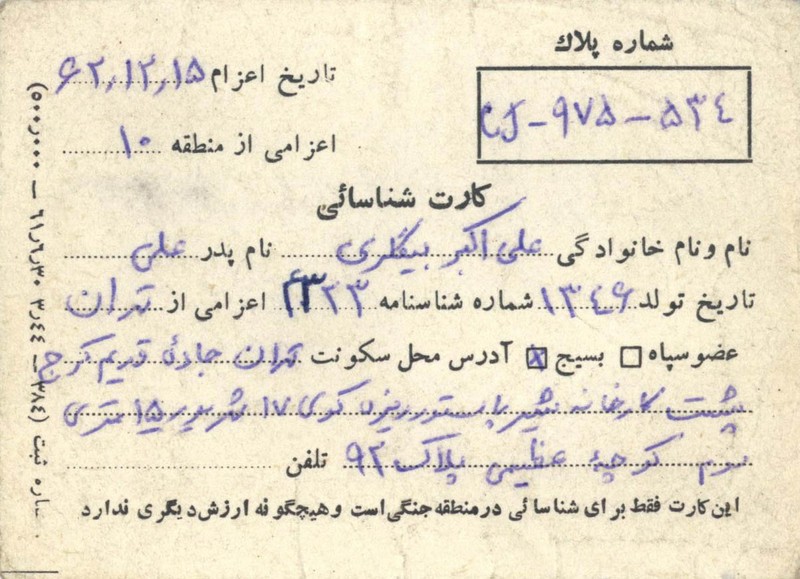 شماره پلاك
CJ - ۹۷۵ - ۵۳٤
تاریخ اعزام ۶۲,۱۲,۱۵
اعزامی از منطقه ۱۰
کارت شناسائی
نام و نام خانوادگی علی اکبر بیگلری نام پدر علی
تاریخ تولد ۱۳٤۶ شماره شناسنامه اعزامی از تهران
عضو سپاه □ بسیج ☒ آدرس محل سکونت تهران جادهٔ قدیم کرج
پشت کارخانه شیر پاستوریزه کوی ۱۷ شهریور ۱۵ متری
سوم کوچهٔ عظیمی پلاک ۹۲ تلفن
این کارت فقط برای شناسائی در منطقه جنگی است و هیچگونه ارزش دیگری ندارد
ثبت (۳۸٤ — ۳٫٤٤ ۶۱٫۶٫۳۰ — ۵۰۰٫۰۰۰)